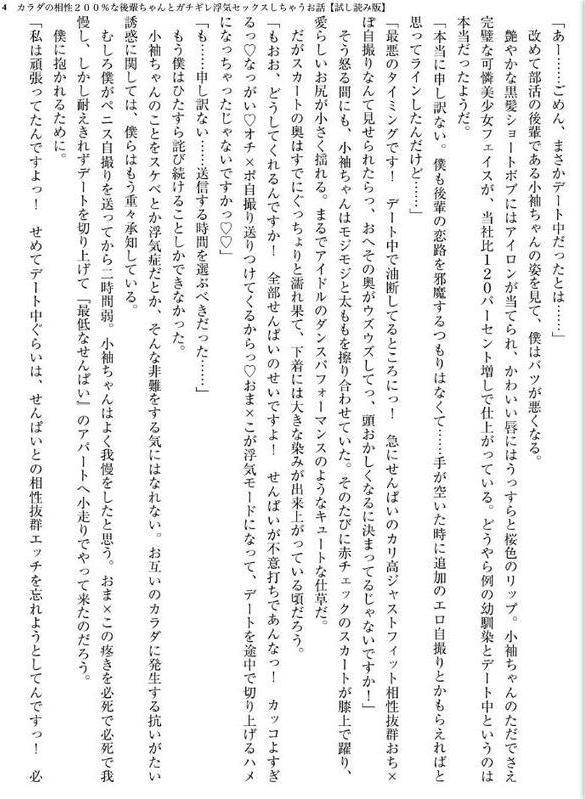 4　カラダの相性200％な後輩ちゃんとガチギレ浮気セックスしちゃうお話【試し読み版】
「あー……ごめん、まさかデート中だったとは……」
改めて部活の後輩である小袖ちゃんの姿を見て、僕はバツが悪くなる。
艶やかな黒髪ショートボブにはアイロンが当てられ、かわいい唇にはうっすらと桜色のリップ。小袖ちゃんのただでさえ
完璧な可憐美少女フェイスが、当社比120パーセント増しで仕上がっている。どうやら例の幼馴染とデート中というのは
本当だったようだ。
「本当に申し訳ない。僕も後輩の恋路を邪魔するつもりはなくて……手が空いた時に追加のエロ自撮りとかもらえればと
思ってラインしたんだけど……」
「最悪のタイミングです！　デート中で油断してるところにっ！　急にせんぱいのカリ高ジャストフィット相性抜群おち×
ぽ自撮りなんて見せられたらっ、おへその奥がウズウズしてっ、頭おかしくなるに決まってるじゃないですか！」
そう怒る間にも、小袖ちゃんはモジモジと太ももを擦り合わせていた。そのたびに赤チェックのスカートが膝上で躍り、
愛らしいお尻が小さく揺れる。まるでアイドルのダンスパフォーマンスのようなキュートな仕草だ。
だがスカートの奥はすでにぐっちょりと濡れ果て、下着には大きな染みが出来上がっている頃だろう。
「もおお、どうしてくれるんですか！　全部せんぱいのせいですよ！　せんぱいが不意打ちであんなっ！　カッコよすぎ
るっ♡なっがい♡オチ×ポ自撮り送りつけてくるからっ♡おま×こが浮気モードになって、デートを途中で切り上げるハメ
になっちゃったじゃないですかっ♡♡」
「も……申し訳ない……送信する時間を選ぶべきだった……」
もう僕はひたすら詫び続けることしかできなかった。
小袖ちゃんのことをスケベとか浮気症だとか、そんな非難をする気にはなれない。お互いのカラダに発生する抗いがたい
誘惑に関しては、僕らはもう重々承知している。
むしろ僕がペニス自撮りを送ってから二時間弱。小袖ちゃんはよく我慢をしたと思う。おま×この疼きを必死で必死で我
慢し、しかし耐えきれずデートを切り上げて『最低なせんぱい』のアパートへ小走りでやって来たのだろう。
僕に抱かれるために。
「私は頑張ってたんですよっ！　せめてデート中ぐらいは、せんぱいとの相性抜群エッチを忘れようとしてんですっ！　必